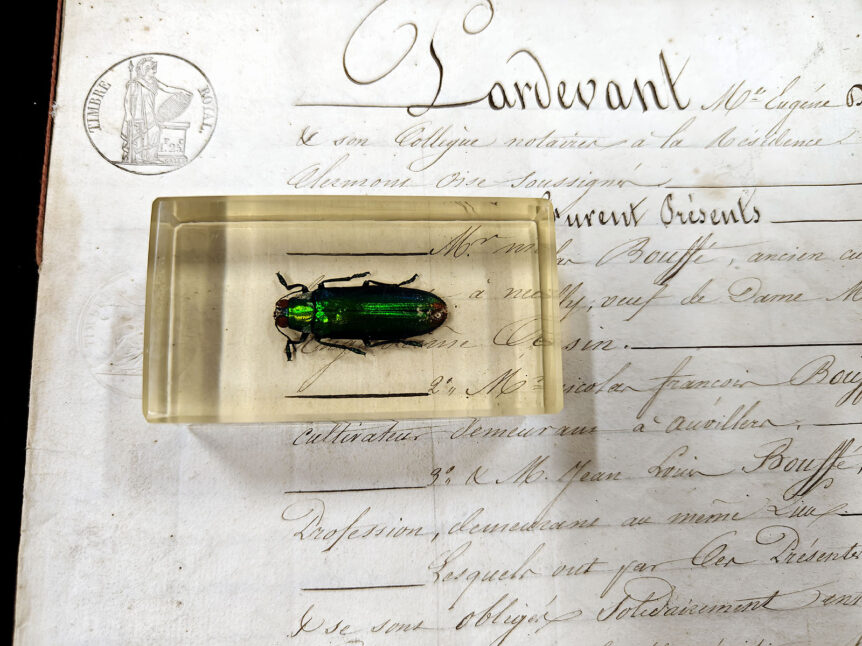 TIMBRE ROYAL
Pardevant Me Eugène
& son Collègue notaires à la Résidence
Clermont Oise soussignés
furent Présents
Mr Bouffé, ancien
à neuilly, veuf de Dame M
sin.
2o, M. nicolas françois Bouf
cultivateur demeurant à auvillers,
3o, & M. Jean Louis Bouffé,
Profession, demeurant au même Lieu
Lesquels ont par Ces Présentes
& se sont obligés Solidairement